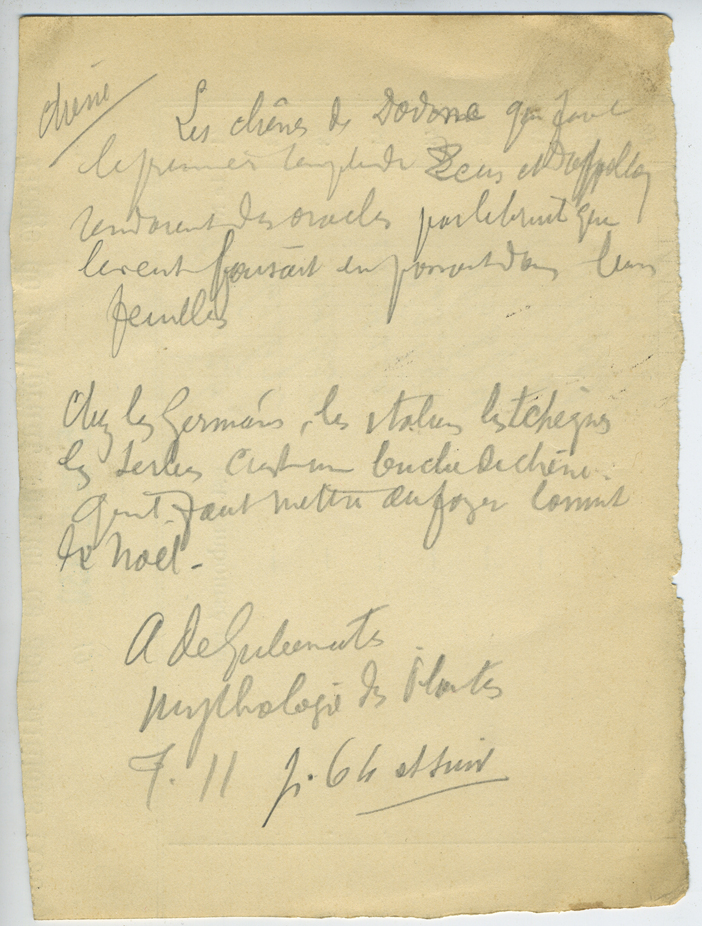 chêne
Les chênes de Dodone qui font
le premier temple de Zeus et D'appollon
rendaient des oracles par le bruit que
le vent faisait en passant dans leurs
feuilles
Chez les Germains, les italiens les tchèques
les serbes c'est une buche de chêne
qu'il faut mettre au foyer la nuit
de Noël -
A de Gubernatis
Mythologie des Plantes
T. II p. 64 et suiv